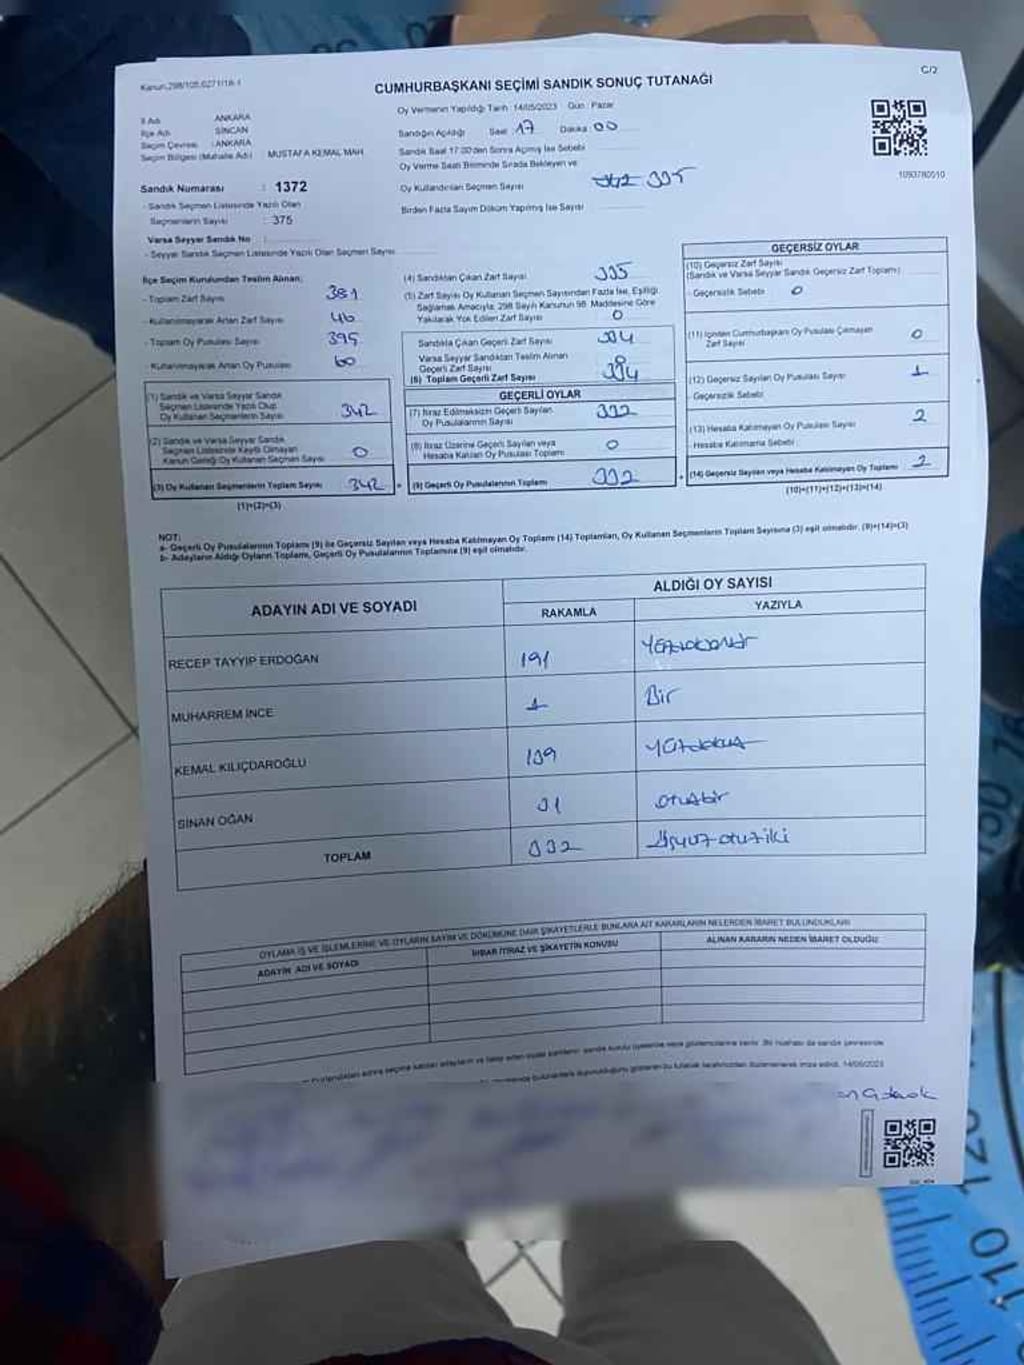 Kanun:298/105,0271/18-1
C/2
CUMHURBAŞKANI SEÇİMİ SANDIK SONUÇ TUTANAĞI
İl Adı ANKARA
İlçe Adı SİNCAN
Seçim Çevresi : ANKARA
Seçim Bölgesi (Mahalle Adı) MUSTAFA KEMAL MAH
Sandık Numarası : 1372
- Sandık Seçmen Listesinde Yazılı Olan
Seçmenlerin Sayısı : 375
Varsa Seyyar Sandık No :
- Seyyar Sandık Seçmen Listesinde Yazılı Olan Seçmen Sayısı
Oy Vermenin Yapıldığı Tarih : 14/05/2023 Gün : Pazar
Sandığın Açıldığı Saat 17 Dakika 00
Sandık Saat 17.00'den Sonra Açılmış İse Sebebi
Oy Verme Saati Bitiminde Sırada Bekleyen ve
Oy Kullandırılan Seçmen Sayısı 342 335
Birden Fazla Sayım Döküm Yapılmış İse Sayısı
1093780510
İlçe Seçim Kurulundan Teslim Alınan;
- Toplam Zarf Sayısı 381
- Kullanılmayarak Artan Zarf Sayısı 46
- Toplam Oy Pusulası Sayısı 395
- Kullanılmayarak Artan Oy Pusulası 60
(1) Sandık ve Varsa Seyyar Sandık
Seçmen Listesinde Yazılı Olup
Oy Kullanan Seçmenlerin Sayısı 342
(2) Sandık ve Varsa Seyyar Sandık
Seçmen Listesinde Kayıtlı Olmayan
Kanun Gereği Oy Kullanan Seçmen Sayısı 0
(3) Oy Kullanan Seçmenlerin Toplam Sayısı 342
(1)+(2)=(3)
(4) Sandıktan Çıkan Zarf Sayısı 335
(5) Zarf Sayısı Oy Kullanan Seçmen Sayısından Fazla İse, Eşitliği
Sağlamak Amacıyla, 298 Sayılı Kanunun 98. Maddesine Göre
Yakılarak Yok Edilen Zarf Sayısı 0
Sandıkta Çıkan Geçerli Zarf Sayısı 334
Varsa Seyyar Sandıktan Teslim Alınan
Geçerli Zarf Sayısı
(6) Toplam Geçerli Zarf Sayısı 334
GEÇERLİ OYLAR
(7) İtiraz Edilmeksizin Geçerli Sayılan
Oy Pusulalarının Sayısı 332
(8) İtiraz Üzerine Geçerli Sayılan veya
Hesaba Katılan Oy Pusulası Toplamı 0
= (9) Geçerli Oy Pusulalarının Toplamı 332
GEÇERSİZ OYLAR
(10) Geçersiz Zarf Sayısı
(Sandık ve Varsa Seyyar Sandık Geçersiz Zarf Toplamı)
- Geçersizlik Sebebi 0
(11) İçinden Cumhurbaşkanı Oy Pusulası Çıkmayan
Zarf Sayısı 0
(12) Geçersiz Sayılan Oy Pusulası Sayısı 1
- Geçersizlik Sebebi
(13) Hesaba Katılmayan Oy Pusulası Sayısı 2
Hesaba Katılmama Sebebi
+ (14) Geçersiz Sayılan veya Hesaba Katılmayan Oy Toplamı 2
(10)+(11)+(12)+(13)=(14)
NOT:
a- Geçerli Oy Pusulalarının Toplamı (9) ile Geçersiz Sayılan veya Hesaba Katılmayan Oy Toplamı (14) Toplamları, Oy Kullanan Seçmenlerin Toplam Sayısına (3) eşit olmalıdır. (9)+(14)=(3)
b- Adayların Aldığı Oyların Toplamı, Geçerli Oy Pusulalarının Toplamına (9) eşit olmalıdır.
ADAYIN ADI VE SOYADI ALDIĞI OY SAYISI
RAKAMLA YAZIYLA
RECEP TAYYİP ERDOĞAN 191
MUHARREM İNCE 1 Bir
KEMAL KILIÇDAROĞLU 109 Yüzdokuz
SİNAN OĞAN 31 otuzbir
TOPLAM 332 üçyüzotuziki
OYLAMA İŞ VE İŞLEMLERİNE VE OYLARIN SAYIM VE DÖKÜMÜNE DAİR ŞİKAYETLERLE BUNLARA AİT KARARLARIN NELERDEN İBARET BULUNDUKLARI
ADAYIN ADI VE SOYADI İHBAR İTİRAZ VE ŞİKAYETİN KONUSU ALINAN KARARIN NEDEN İBARET OLDUĞU